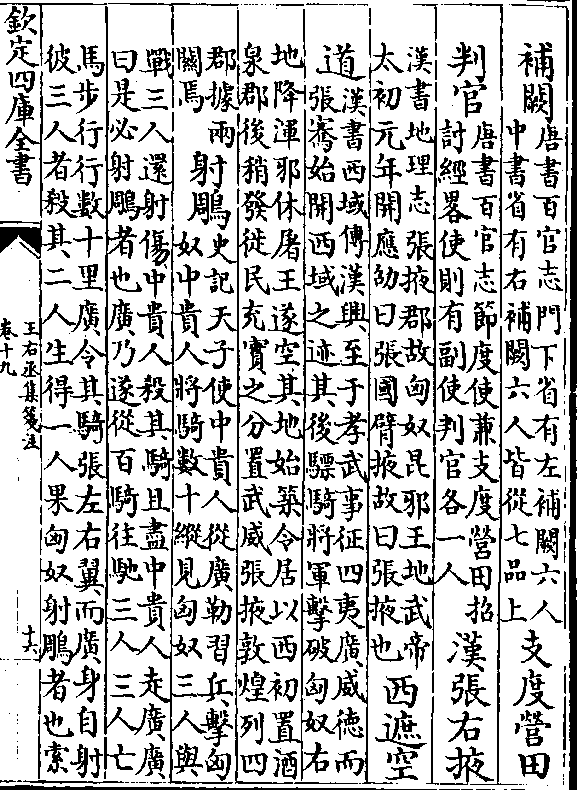 補闕
唐書百官志門下省有左補闕六人
中書省有右補闕六人皆從七品上
支度營田
判官
唐書百官志節度使兼支度營田招
討經畧使則有副使判官各一人
漢張右掖
漢書地理志張掖郡故匈奴昆邪王地武帝
太初元年開應劭曰張國臂掖故曰張掖也
西遮空
道
漢書西域傳漢興至于孝武事征四夷廣威德而
張騫始開西域之迹其後驃騎將軍擊破匈奴右
地降渾邪休屠王遂空其地始築令居以西初置酒
泉郡後稍發徙民充實之分置武威張掖敦煌列四
郡據兩
關焉
射鵰
史記天子使中貴人從廣勒習兵擊匈
奴中貴人將騎數十縱見匈奴三人與
戰三人還射傷中貴人殺其騎且盡中貴人走廣廣
曰是必射鵰者也廣乃遂從百騎往馳三人三人亡
馬步行行數十里廣令其騎張左右翼而廣身自射
彼三人者殺其二人生得一人果匈奴射鵰者也索
欽定四庫全書
王右丞集箋注
卷十九
十六